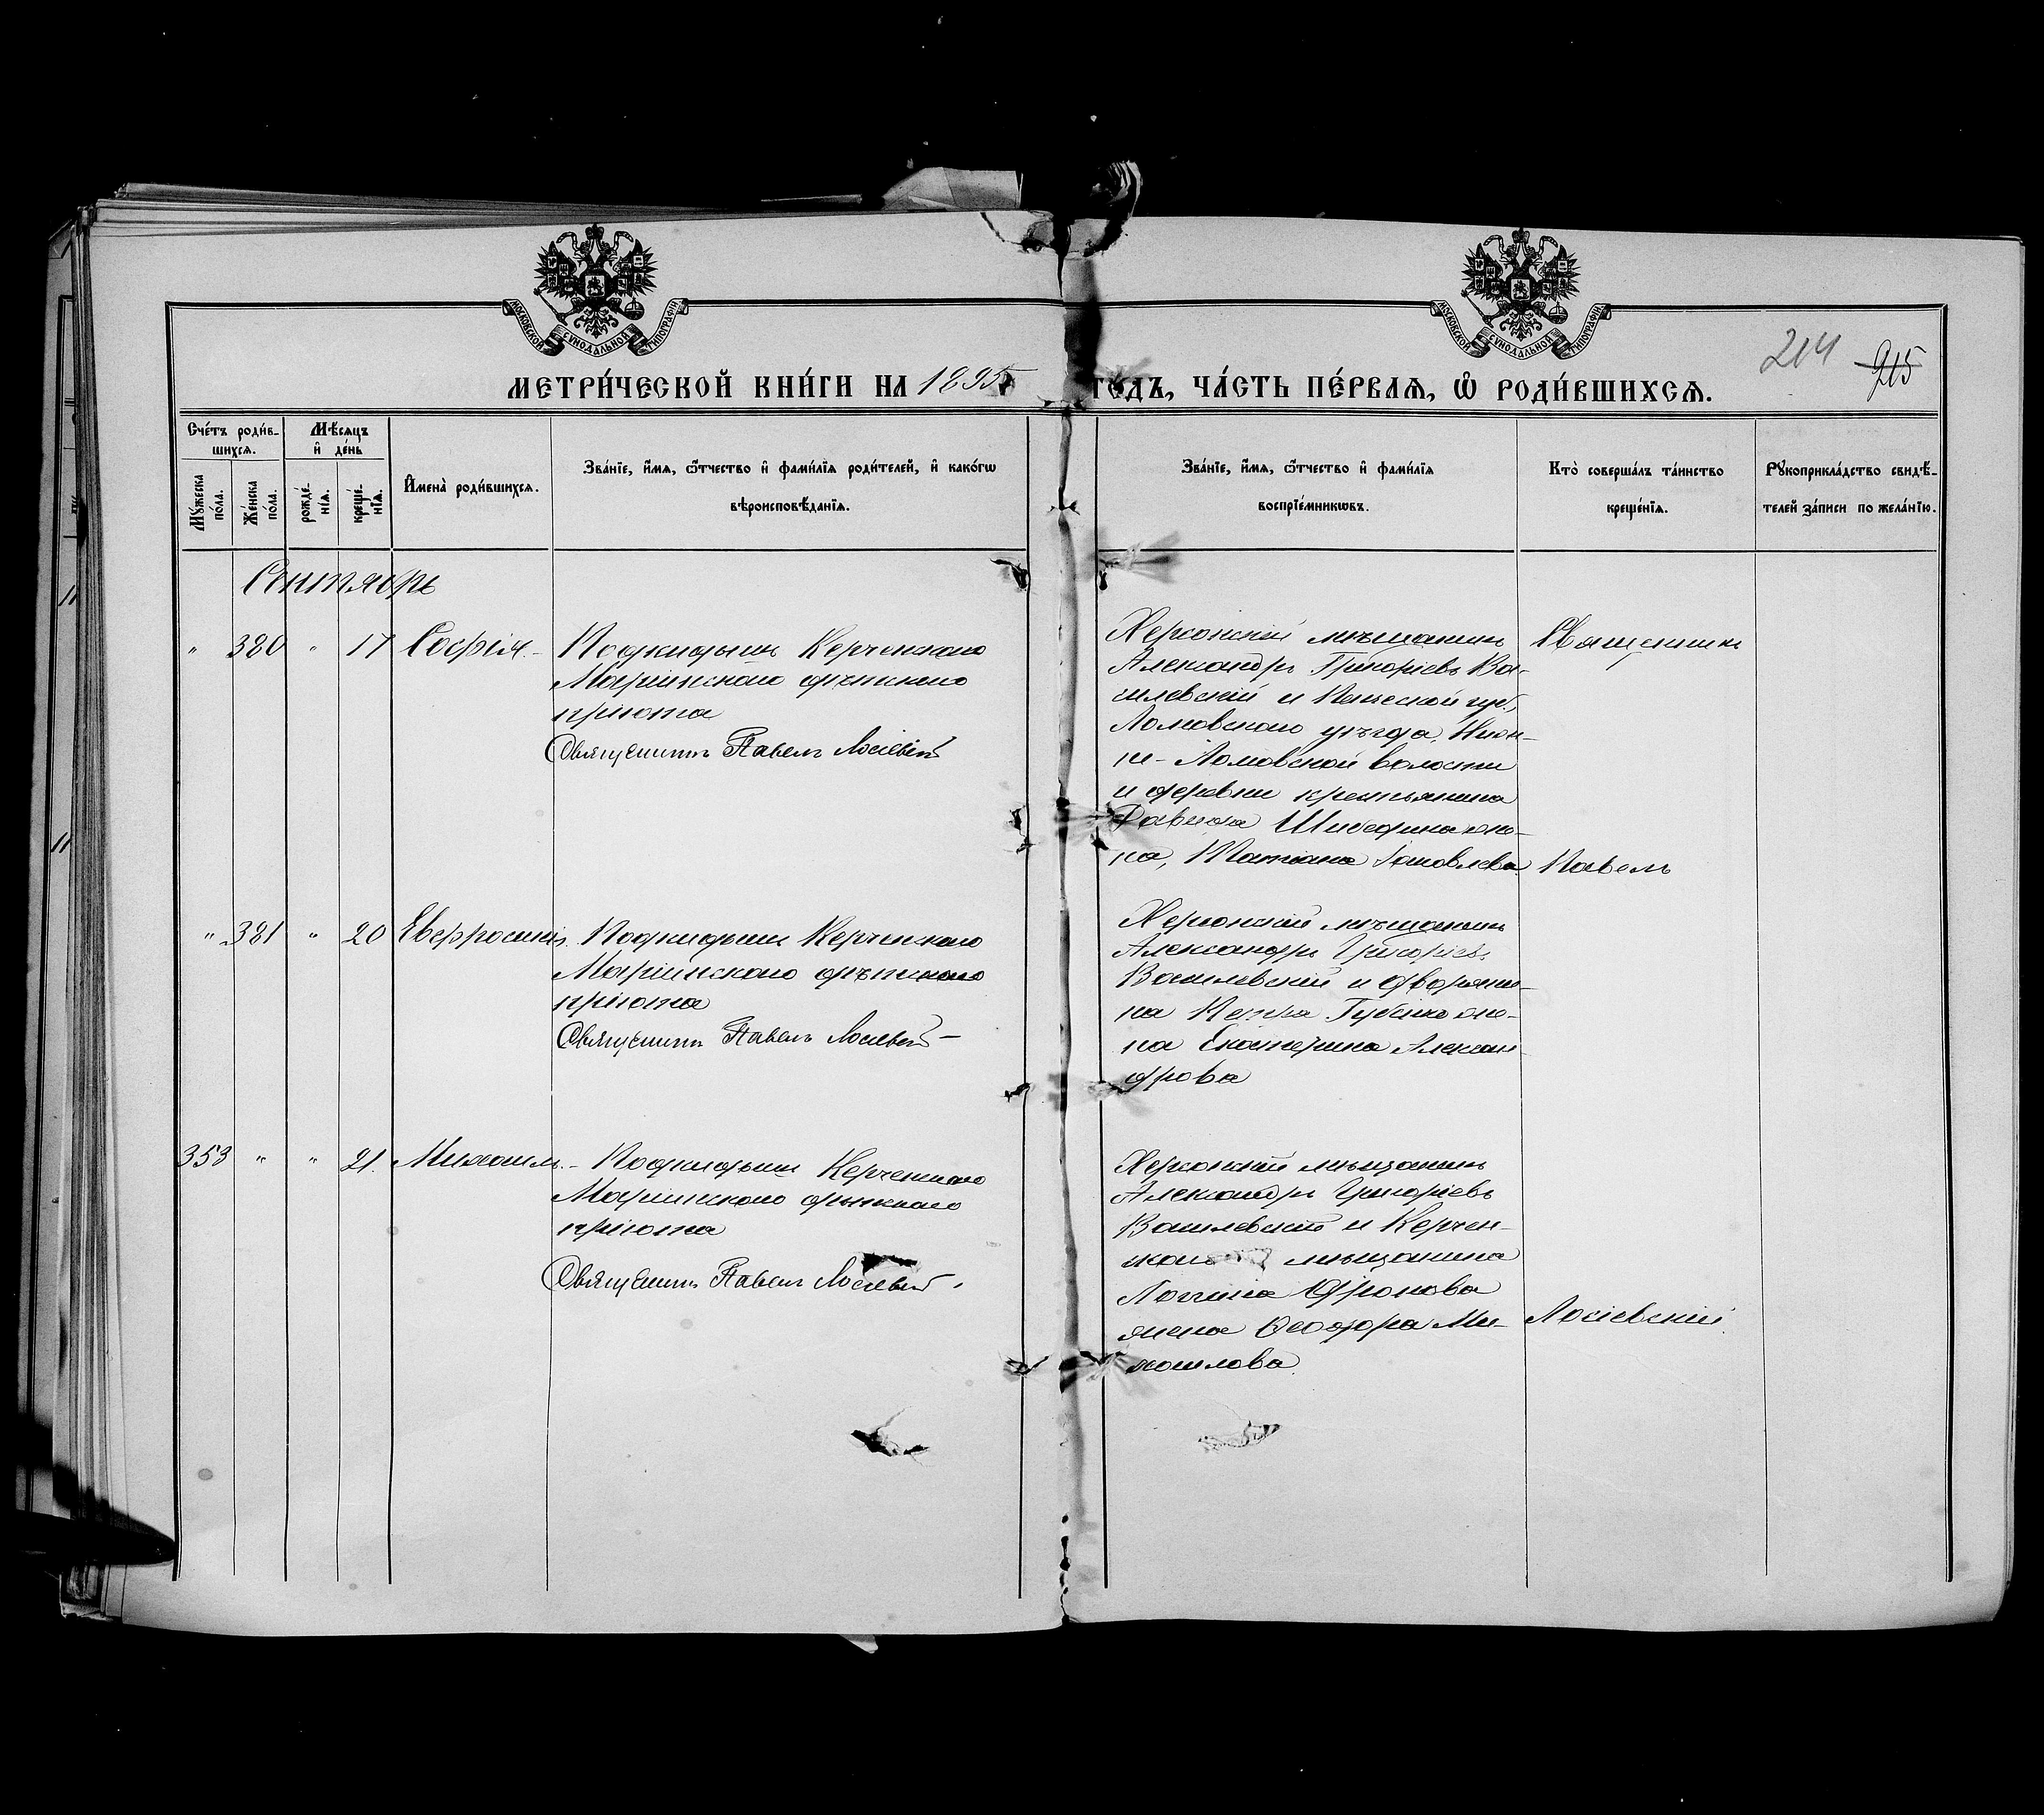 МОСКОВСКОЙ СУНОДАЛЬНОЙ ТИПОГРАФІИ
МОСКОВСКОЙ СУНОДАЛЬНОЙ ТИПОГРАФІИ
214 215
МЕТРИ́ЧЕСКОЙ КНИ́ГИ НА 1895
ГОДЪ, ЧА́СТЬ ПЕ́РВАѦ, Ѡ РОДИ́ВШИХСѦ.
Сче́тъ роди́в-
шихсѧ.
Мꙋ́жеска по́ла.
Же́нска по́ла.
Мѣ́сѧцъ
и҆ де́нь
рожде́-
нїѧ.
креще́-
нїѧ.
И҆мена̀ роди́вшихсѧ.
Зва́нїе, и҆́мѧ, ѻ҆́тчество и҆ фами́лїѧ роди́телей, и҆ како́гѡ
вѣроисповѣ́данїѧ.
Зва́нїе, и҆́мѧ, ѻ҆́тчество и҆ фами́лїѧ
воспрїе́мникѡвъ.
Кто̀ соверша́лъ та́инство
креще́нїѧ.
Рꙋкоприкла́дство свидѣ́-
телей за́писи по жела́нїю.
Сентябрь
" 380 " 17 София.-
Подкидышъ Керченскаго
Маріинскаго дѣтскаго
пріюта
Священникъ Павелъ Лосіевскій
Херсонскій мѣщанинъ
Александръ Григоріевъ Ва-
силевскій и Пензенской губ.,
Ломовскаго уѣзда, Ниж-
не-Ломовской волости
и деревни крестьянина
Давида Шибедина же-
на, Татіана Іаковлева.
Священникъ
Павелъ
" 381 " 20 Евфросинія.
Подкидышъ Керченскаго
Маріинскаго дѣтскаго
пріюта
Священникъ Павелъ Лосіевскій-
Херсонскій мѣщанинъ
Александръ Григоріевъ
Василевскій и дворяни-
на Петра Губенко же-
на Екатерина Алексан-
дрова
353 " " 21. Михаилъ.-
Подкидышъ Керченскаго
Маріинскаго дѣтскаго
пріюта
Священникъ Павелъ Лосіевскій.
Херсонскій мѣщанинъ
Александръ Григоріевъ
Василевскій и Керчен-
скаго мѣщанина
Логгина Фронова
жена Феодора Ми-
хаилова.
Лосіевскій